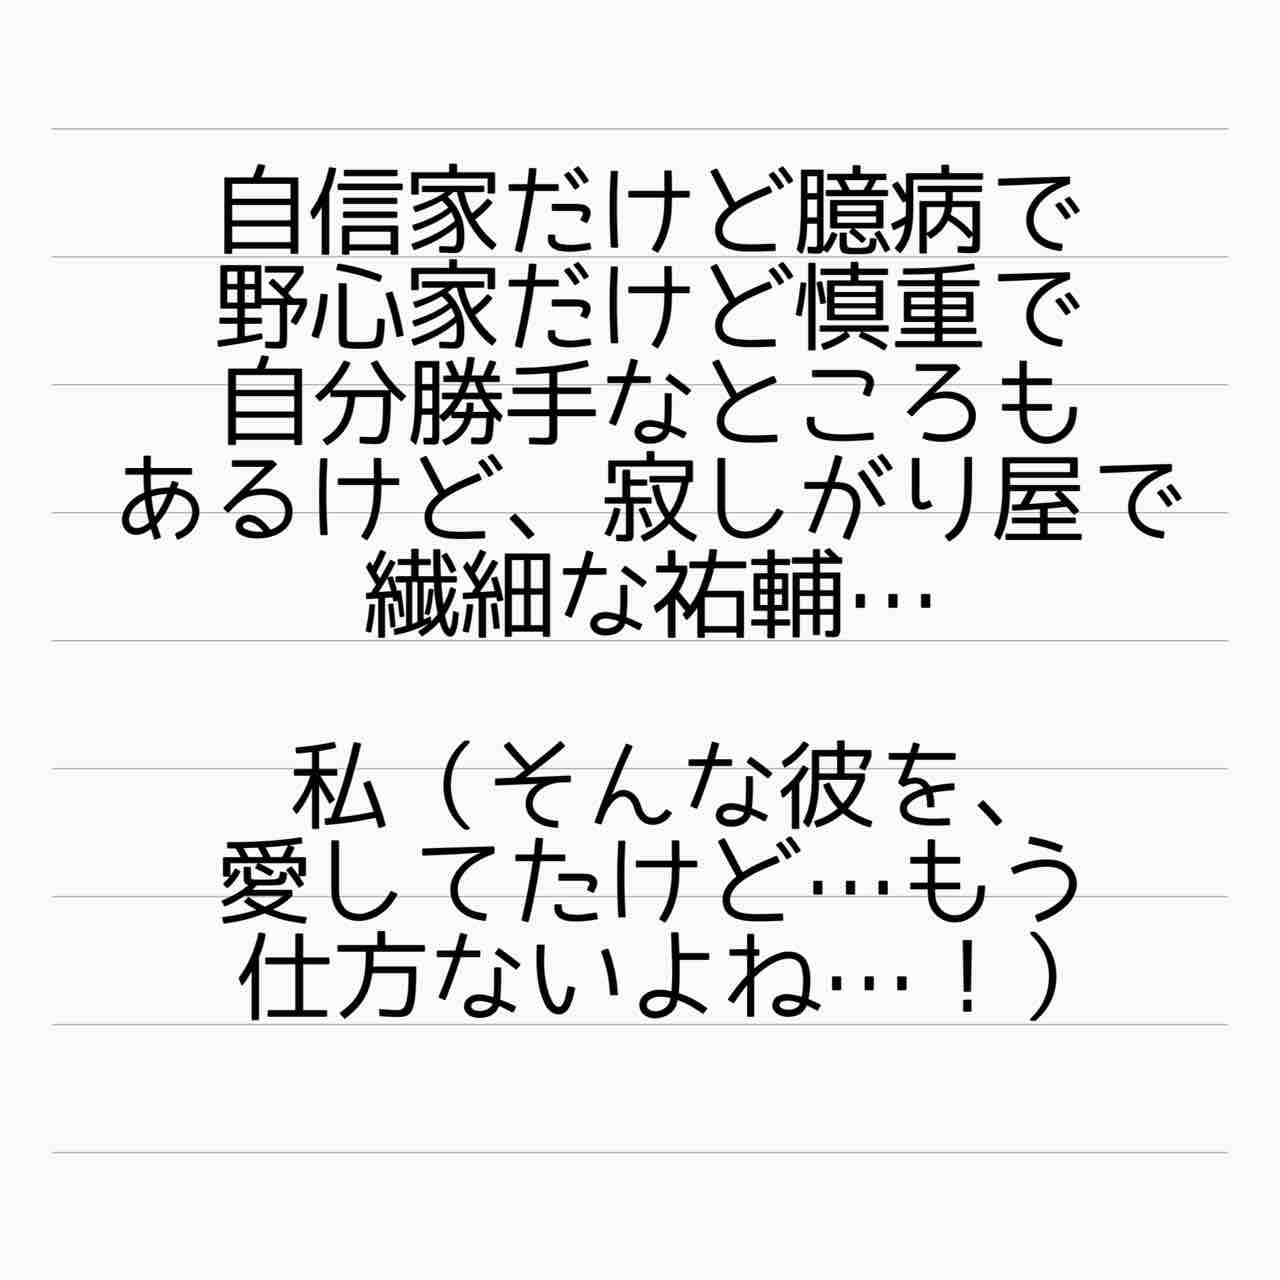 自信家だけど臆病で
野心家だけど慎重で
自分勝手なところも
あるけど、寂しがり屋で
繊細な祐輔…
私（そんな彼を、
愛してたけど…もう
仕方ないよね…！）